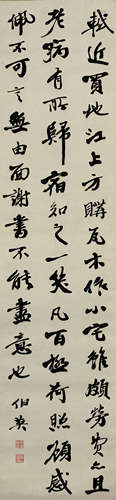 軾近買地江上方購瓦木作小宅雖頗勞費亦且
老病有所歸宿知之一笑凡百極荷照顧感
佩不可言無由面謝書不能盡意也 伯英